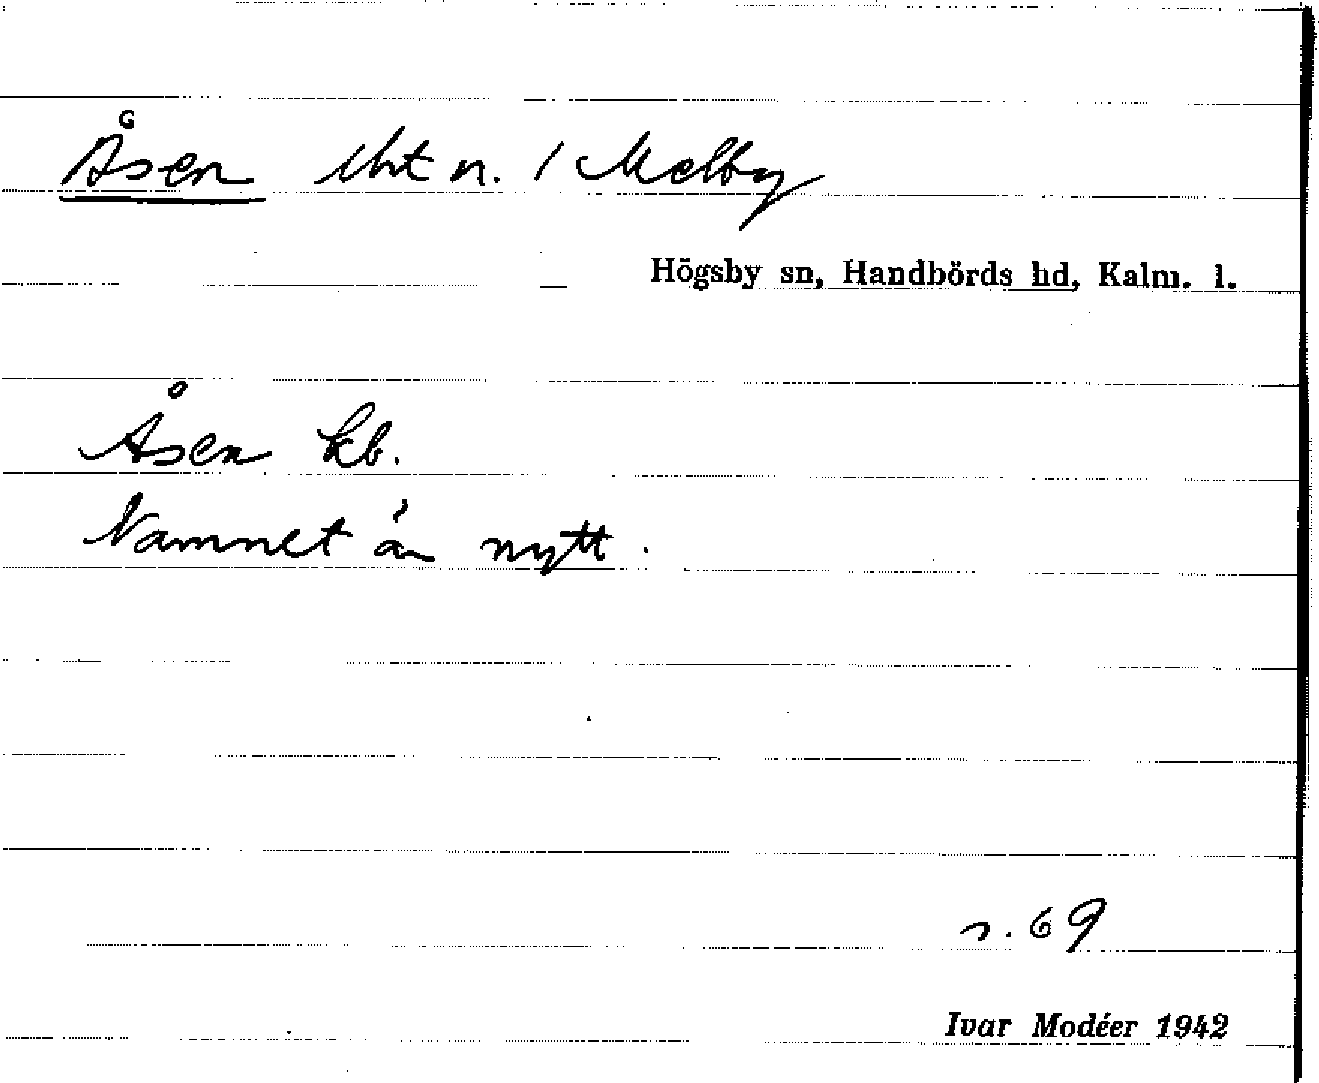 Åsen lht n. / Melby
Högsby sn, Handbörds hd, Kalm. l.
Åsen kb.
Namnet är nytt.
s. 69
Ivar Modéer 1942